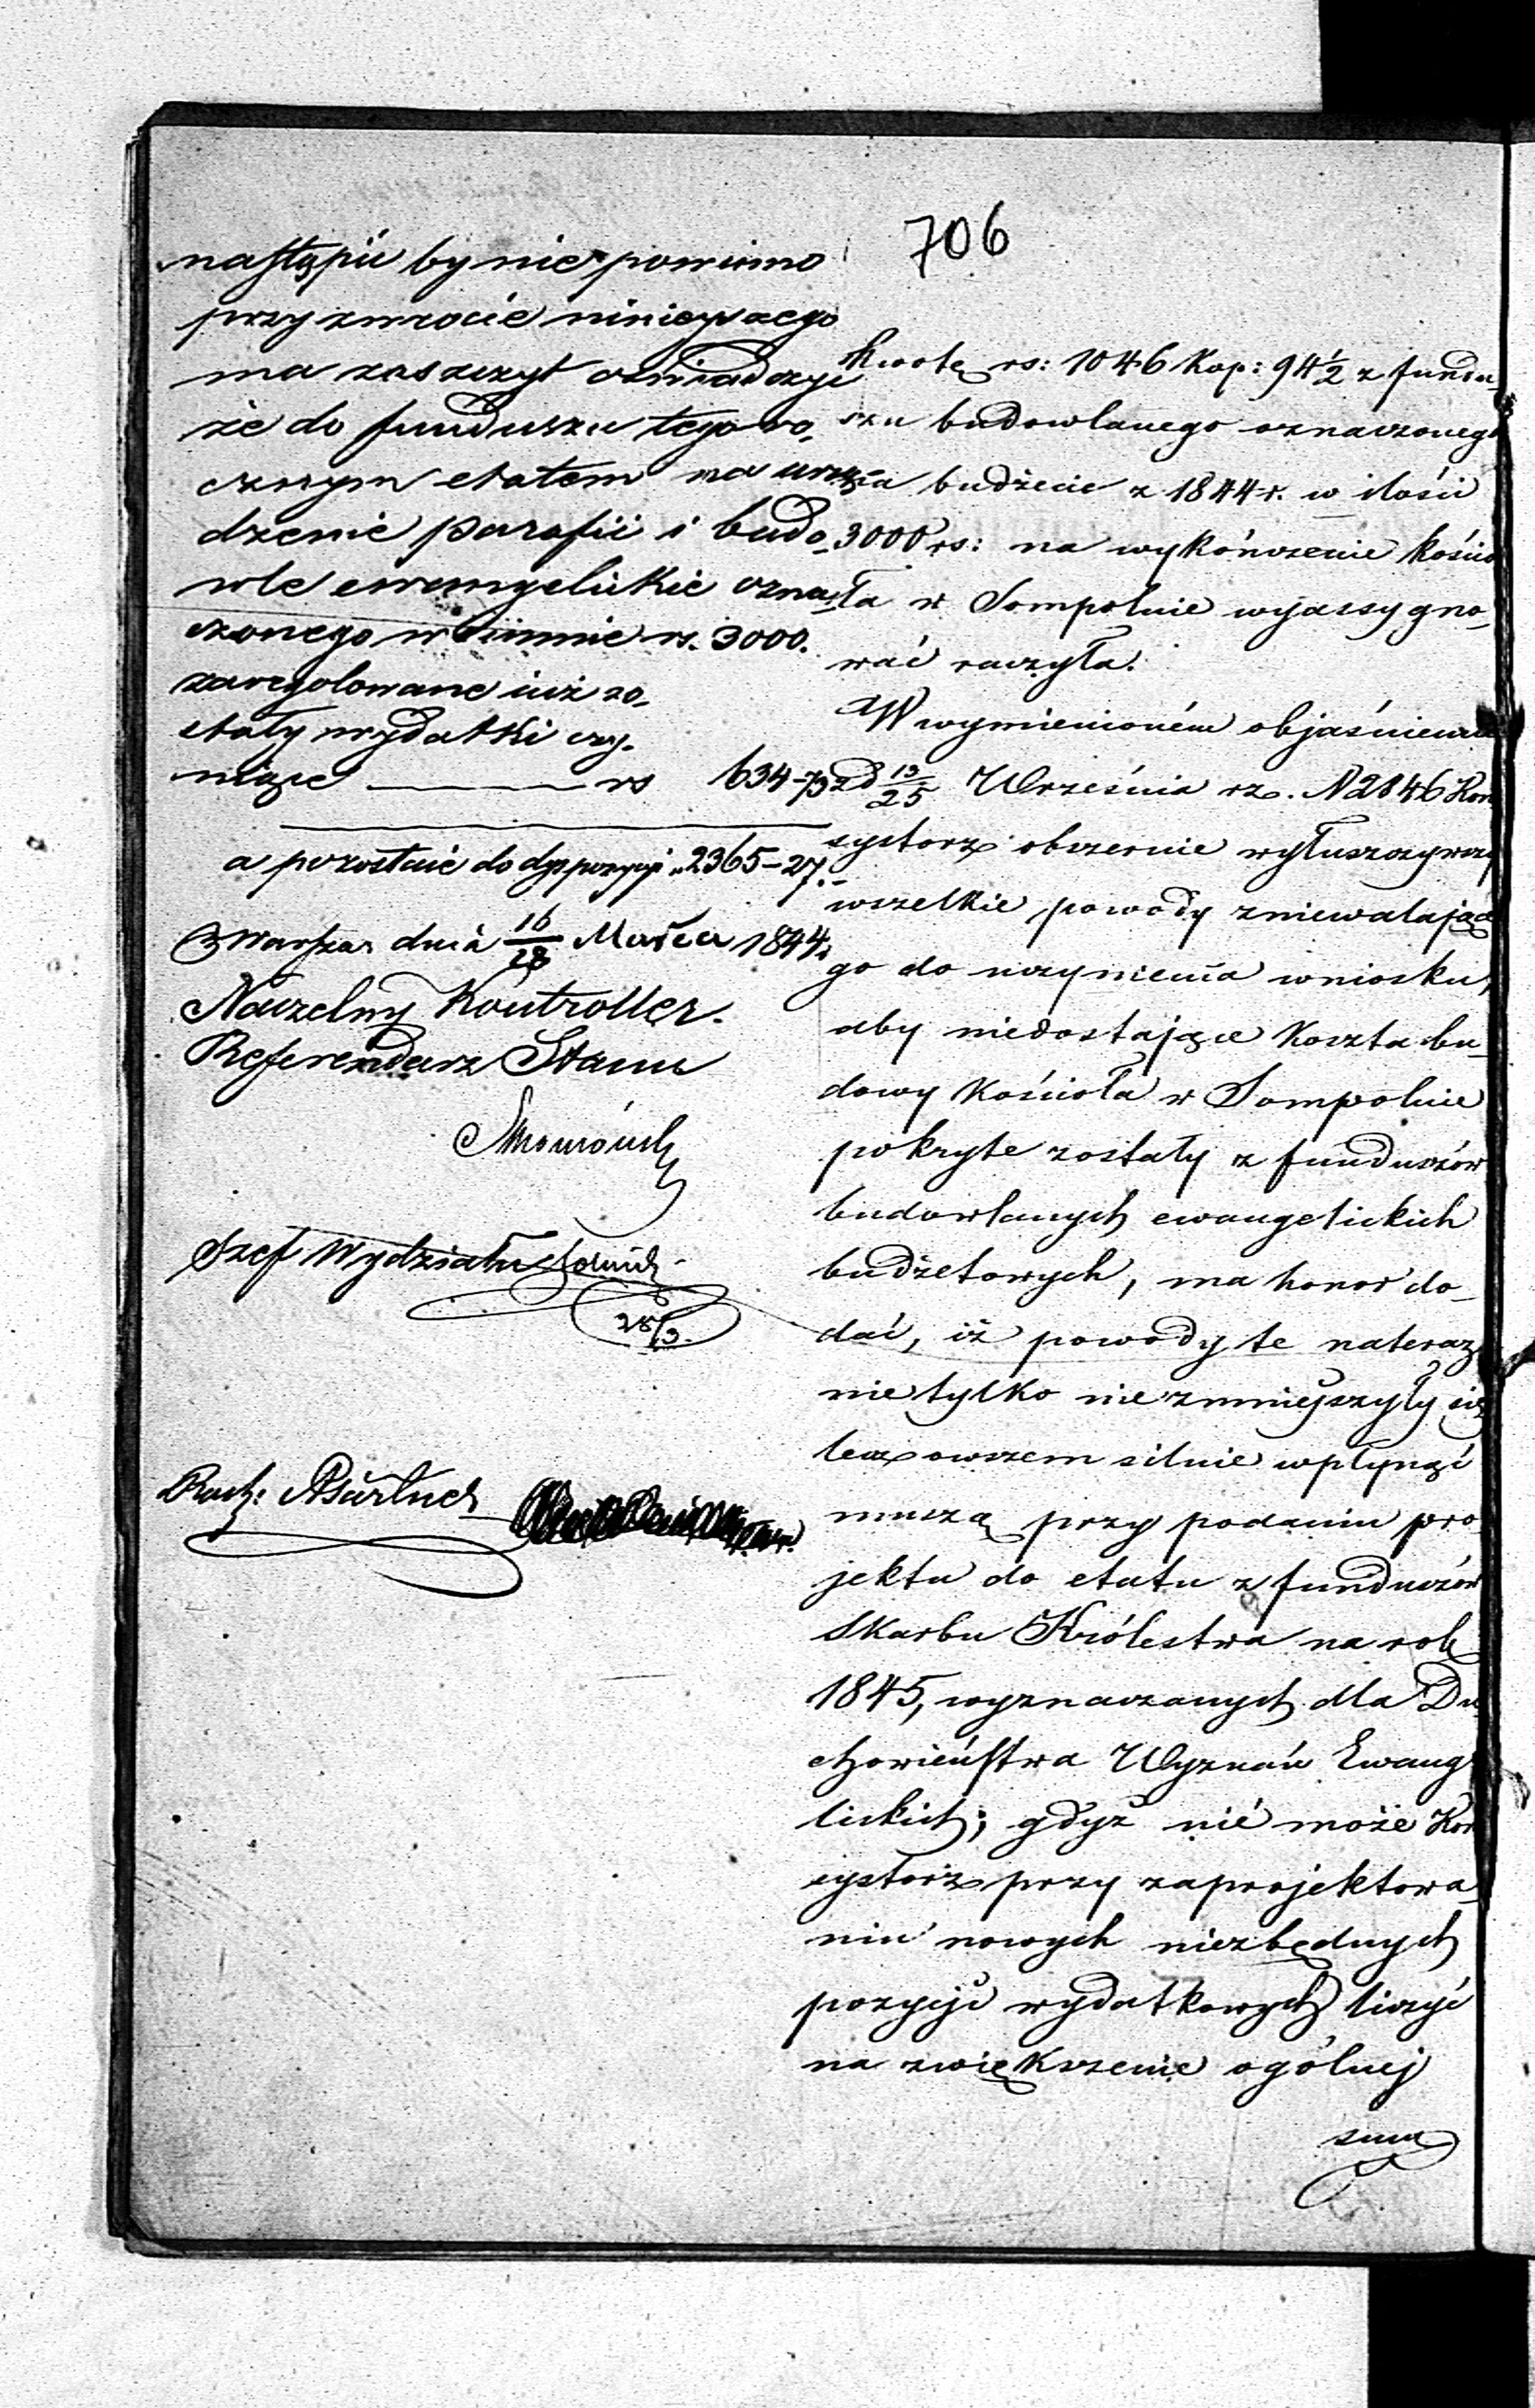 706
nastąpić by nie powinno
przy zwrocie niniejszego
ma zaszczyt oświadczyć
że do funduszu tegoro-
cznym etatem na urzą-
dzenie parafii i budo-
wle ewangelickie ozna-
czonego w summie rs. 3000.
zaregulowane już zo-
stały wydatki czy-
niące ——— rs 634-73
a pozostaie do dyspozycyi „2365-27.
w Warsza. dnia 16/28 Marca 1844.
Naczelny Kontroller.
Referendarz Stanu
Szef Wydziału
28/3.
Rach:
kwotę rs: 1046 kop: 94½ z fundu-
szu budowlanego oznaczonego
na budżecie z 1844 r. w ilości
3000 rs: na wykończenie kościo-
ła w Sompolnie wyassygno-
wać raczyła.
W wymienioném objaśnieniu
z d 13/25 Września rz. N 2846 Kon
systorz obszernie wyłuszczywszy
wszelkie powody zniewalające
go do uczynienia wniosku,
aby niedostające koszta bu-
dowy kościoła w Sompolnie
pokryte zostały z funduszów
budowlanych ewangelickich
budżetowych, ma honor do-
dać, iż powody te nateraz
nie tylko nie zmniejszyły się
lecz owszem silnie wpłynąć
muszą przy podaniu pro-
jektu do etatu z funduszów
Skarbu Królestwa na rok
1845, wyznaczanych dla Du-
chowieństwa Wyznań Ewange
lickich; gdyż nie może Kon
systorz przy zaprojektowa-
niu nowych niezbędnych
pozycji wydatkowych liczyć
na zwiększenie ogólnej
sumy